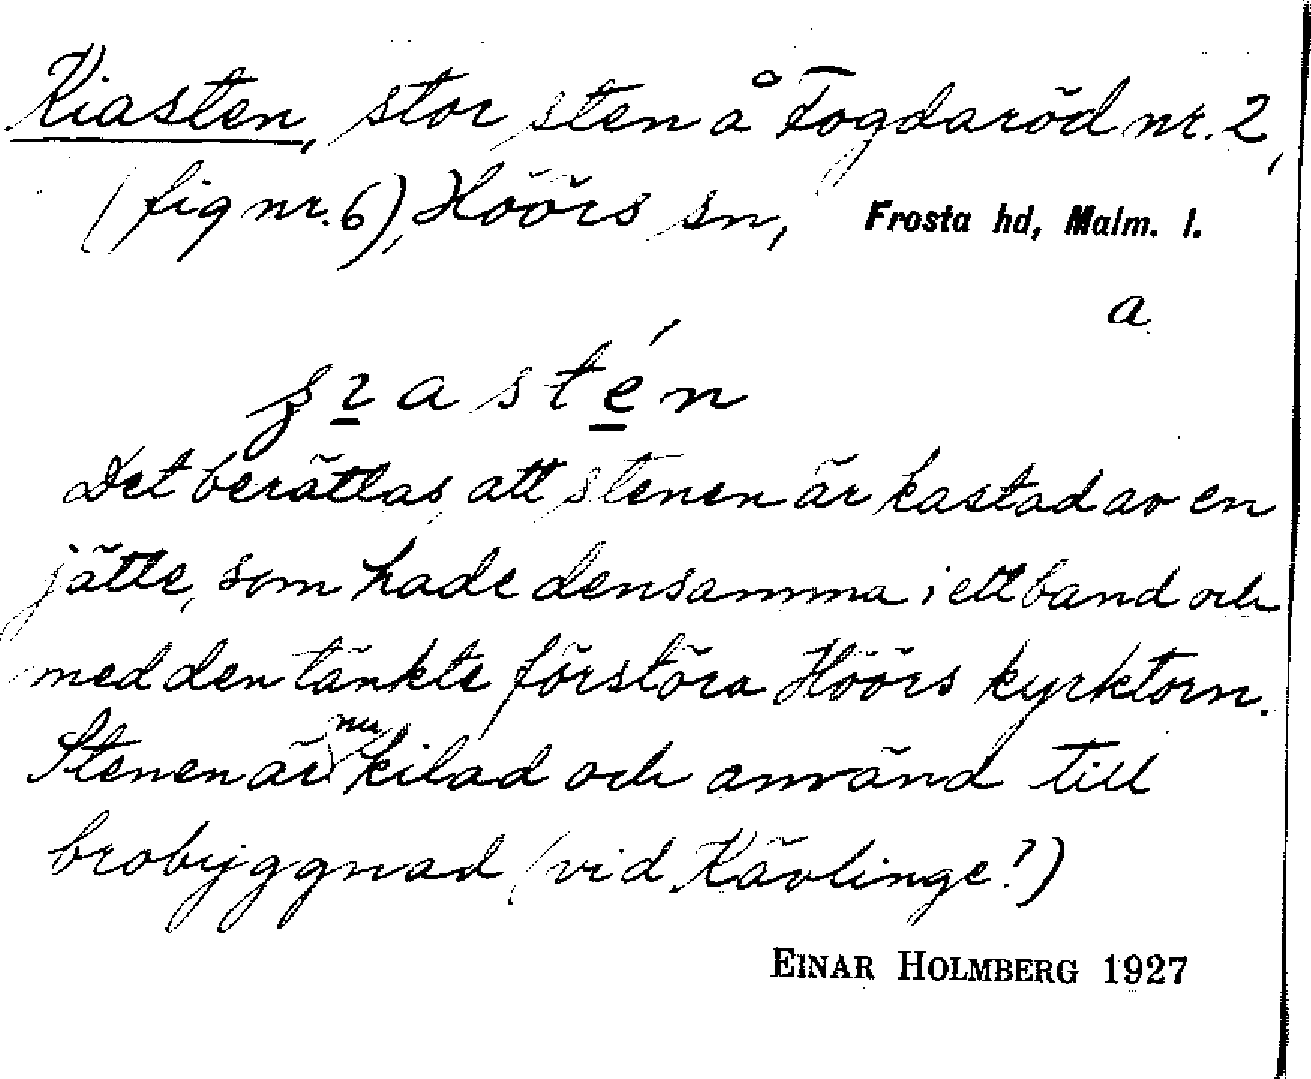 Kiasten, stor sten å Fogdaröd nr. 2,
(fig nr. 6), Höörs sn, Frosta hd, Malm. l.
a
astén
Det berättas, att stenen är kastad av en
jätte, som hade densamma i ett band och
med den tänkte förstöra Höörs kyrktorn.
Stenen är nu kilad och använd till
brobyggnad (vid Kävlinge?)
EINAR HOLMBERG 1927